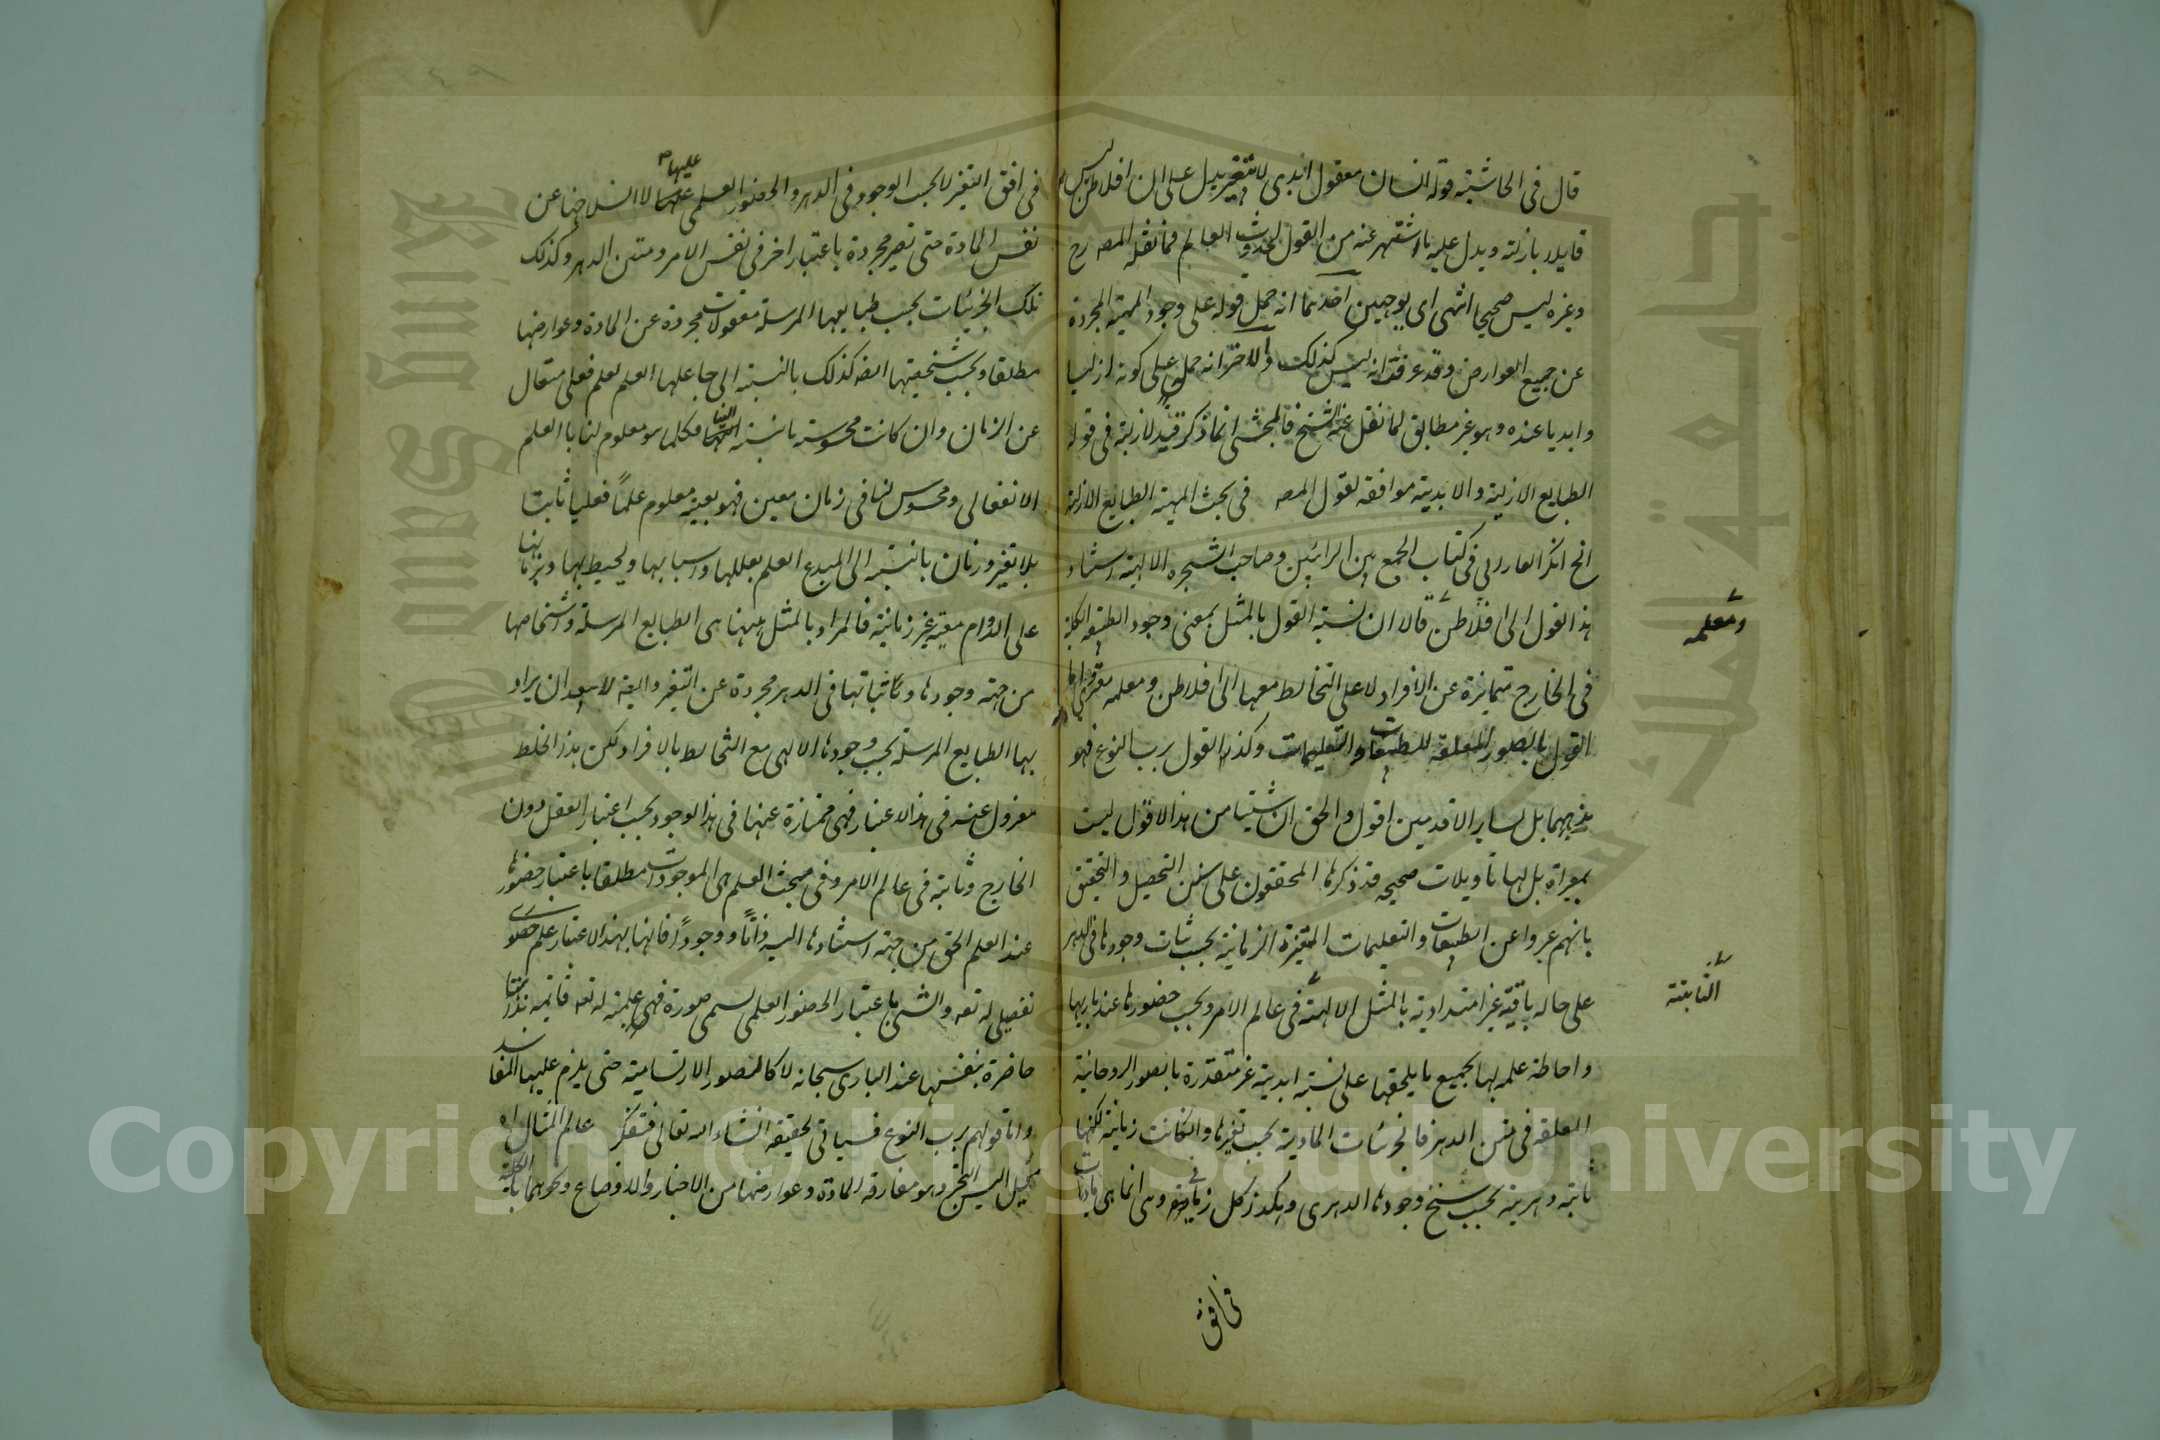 قال في الحاشية قوله انسان معقول ابدي لا يتغير يدل على ان افلاطن ليس
قايلا بازلته ويدل عليه ما اشتهر عنه من القول بحدوث العالم فما نقله المصه رح
وغيره ليس صحيحا انتهى اي بوجهين احدهما انه حمل قوله على وجود المهية المجردة
عن جميع العوارض وقد عرفت انه ليس كذلك والاخر انه حمل على كونه ازليا
وابديا عنده وهو غير مطابق لما نقل عنه الشيخ فالمحشي انما ذكر قيد لازلية في قوله
الطبايع الازلية والابدية موافقه لقول المصه في بحث المهية الطبايع الازلية
الخ انكر الفارابي في كتاب الجمع بين الرائين وصاحب الشجره الالهية اسناد
هذا القول الى افلاطن ومعلمه قالا ان نسبة القول بالمثل بمعنى وجود الطبيعه الكلية
في الخارج متمايزة عن الافراد لا على التخالط معها الى افلاطن ومعلمه
القول بالصور المعلقه للطبيعات والتعليمات وكذا القول برب النوع فهو
مذهبهما بل ساير الاقدمين اقول والحق ان شيئا من هذا الاقول ليست
بمبراة بل لها تاويلات صحيحه قد ذكرها المحققون على سنن التحصيل والتحقيق
بانهم عبروا عن الطبيعات والتعليمات المتغيرة الزمانية بحسب ثبات وجودها في الدهر
على حاله باقية غير امتدادية بالمثل الالهية الثابتة في عالم الامر وبحسب حضورها عند باريها
واحاطة علمه بها بجميع ما يلحقها على نسبة ابدية غير متقدرة بالصور الروحانية
المعلقه في متن الدهر فالجزئيات المادية بحسب تغيرها وان كانت زمانية لكنها
ثابتة دهرية بحسب سنخ وجودها الدهري وهكذا كل زماني وهي انما هي ماديات
في افق
في افق التغير لا بحسب الوجود في الدهر والحضور العلمي عليها لا انسلاخها عن
نفس المادة حتى تصير مجردة باعتبار اخر في نفس الامر ومتن الدهر وكذلك
تلك الجزئيات بحسب طبايعها المرسلة معقولات مجردة عن المادة وعوارضها
مطلقا وبحسب شخصيتها ايضه كذلك بالنسبة الى جاعلها العلم بعلم فعلي متعال
عن الزمان وان كانت محسوسة بالنسبة الينا فكلما هو معلوم لنا با العلم
الانفعالي ومحسوس لنا في زمان معين فهو بعينه معلوم علماً فعليا ثابتا
بلا تغير وزمان بالنسبة الى المبدع العلم بعللها واسبابها ويحيط بها وبزمانها
على الدوام معية غير زمانية فالمراد بالمثل ههنا هي الطبايع المرسلة واشخاصها
من جهة وجودها وثباتها في الدهر مجردة عن التغير وايضه لا يبعد ان يراد
بها الطبايع المرسلة بحسب وجودها الالهي مع التخالط بالافراد لكن هذا الخلط
معزول عنه في هذا الاعتبار فهي ممتازة عنها في هذا الوجود بحسب اعتبار العقل دون
الخارج وثابتة في عالم الامر وفي مبحث العلم هي الموجودات مطلقا باعتبار حضورها
عند العلم الحق من جهة استنادها اليه ذاتاً ووجوداً فانها بهذا الاعتبار علم حضوري
تفصيلي له تعه والشي باعتبار الحضور العلمي يسمى صورة فهي علميه له تعه قائمة بذاتها
حاضرة بنفسها عند الباري سبحانه لا كالصور الارتسامية حتى يلزم عليها المفاسد
واما قولهم برب النوع فسياتي تحقيقه انشاء الله تعالى فتفكر عالم المثال اه
قيل ليس التجرد هو مفارقه المادة وعوارضها من الاخبار والاوضاع ونحوهما بالكلية
ومعلمه
الثابتة
Copyright © King Saud University
King Saud University
جامعة الملك سعود